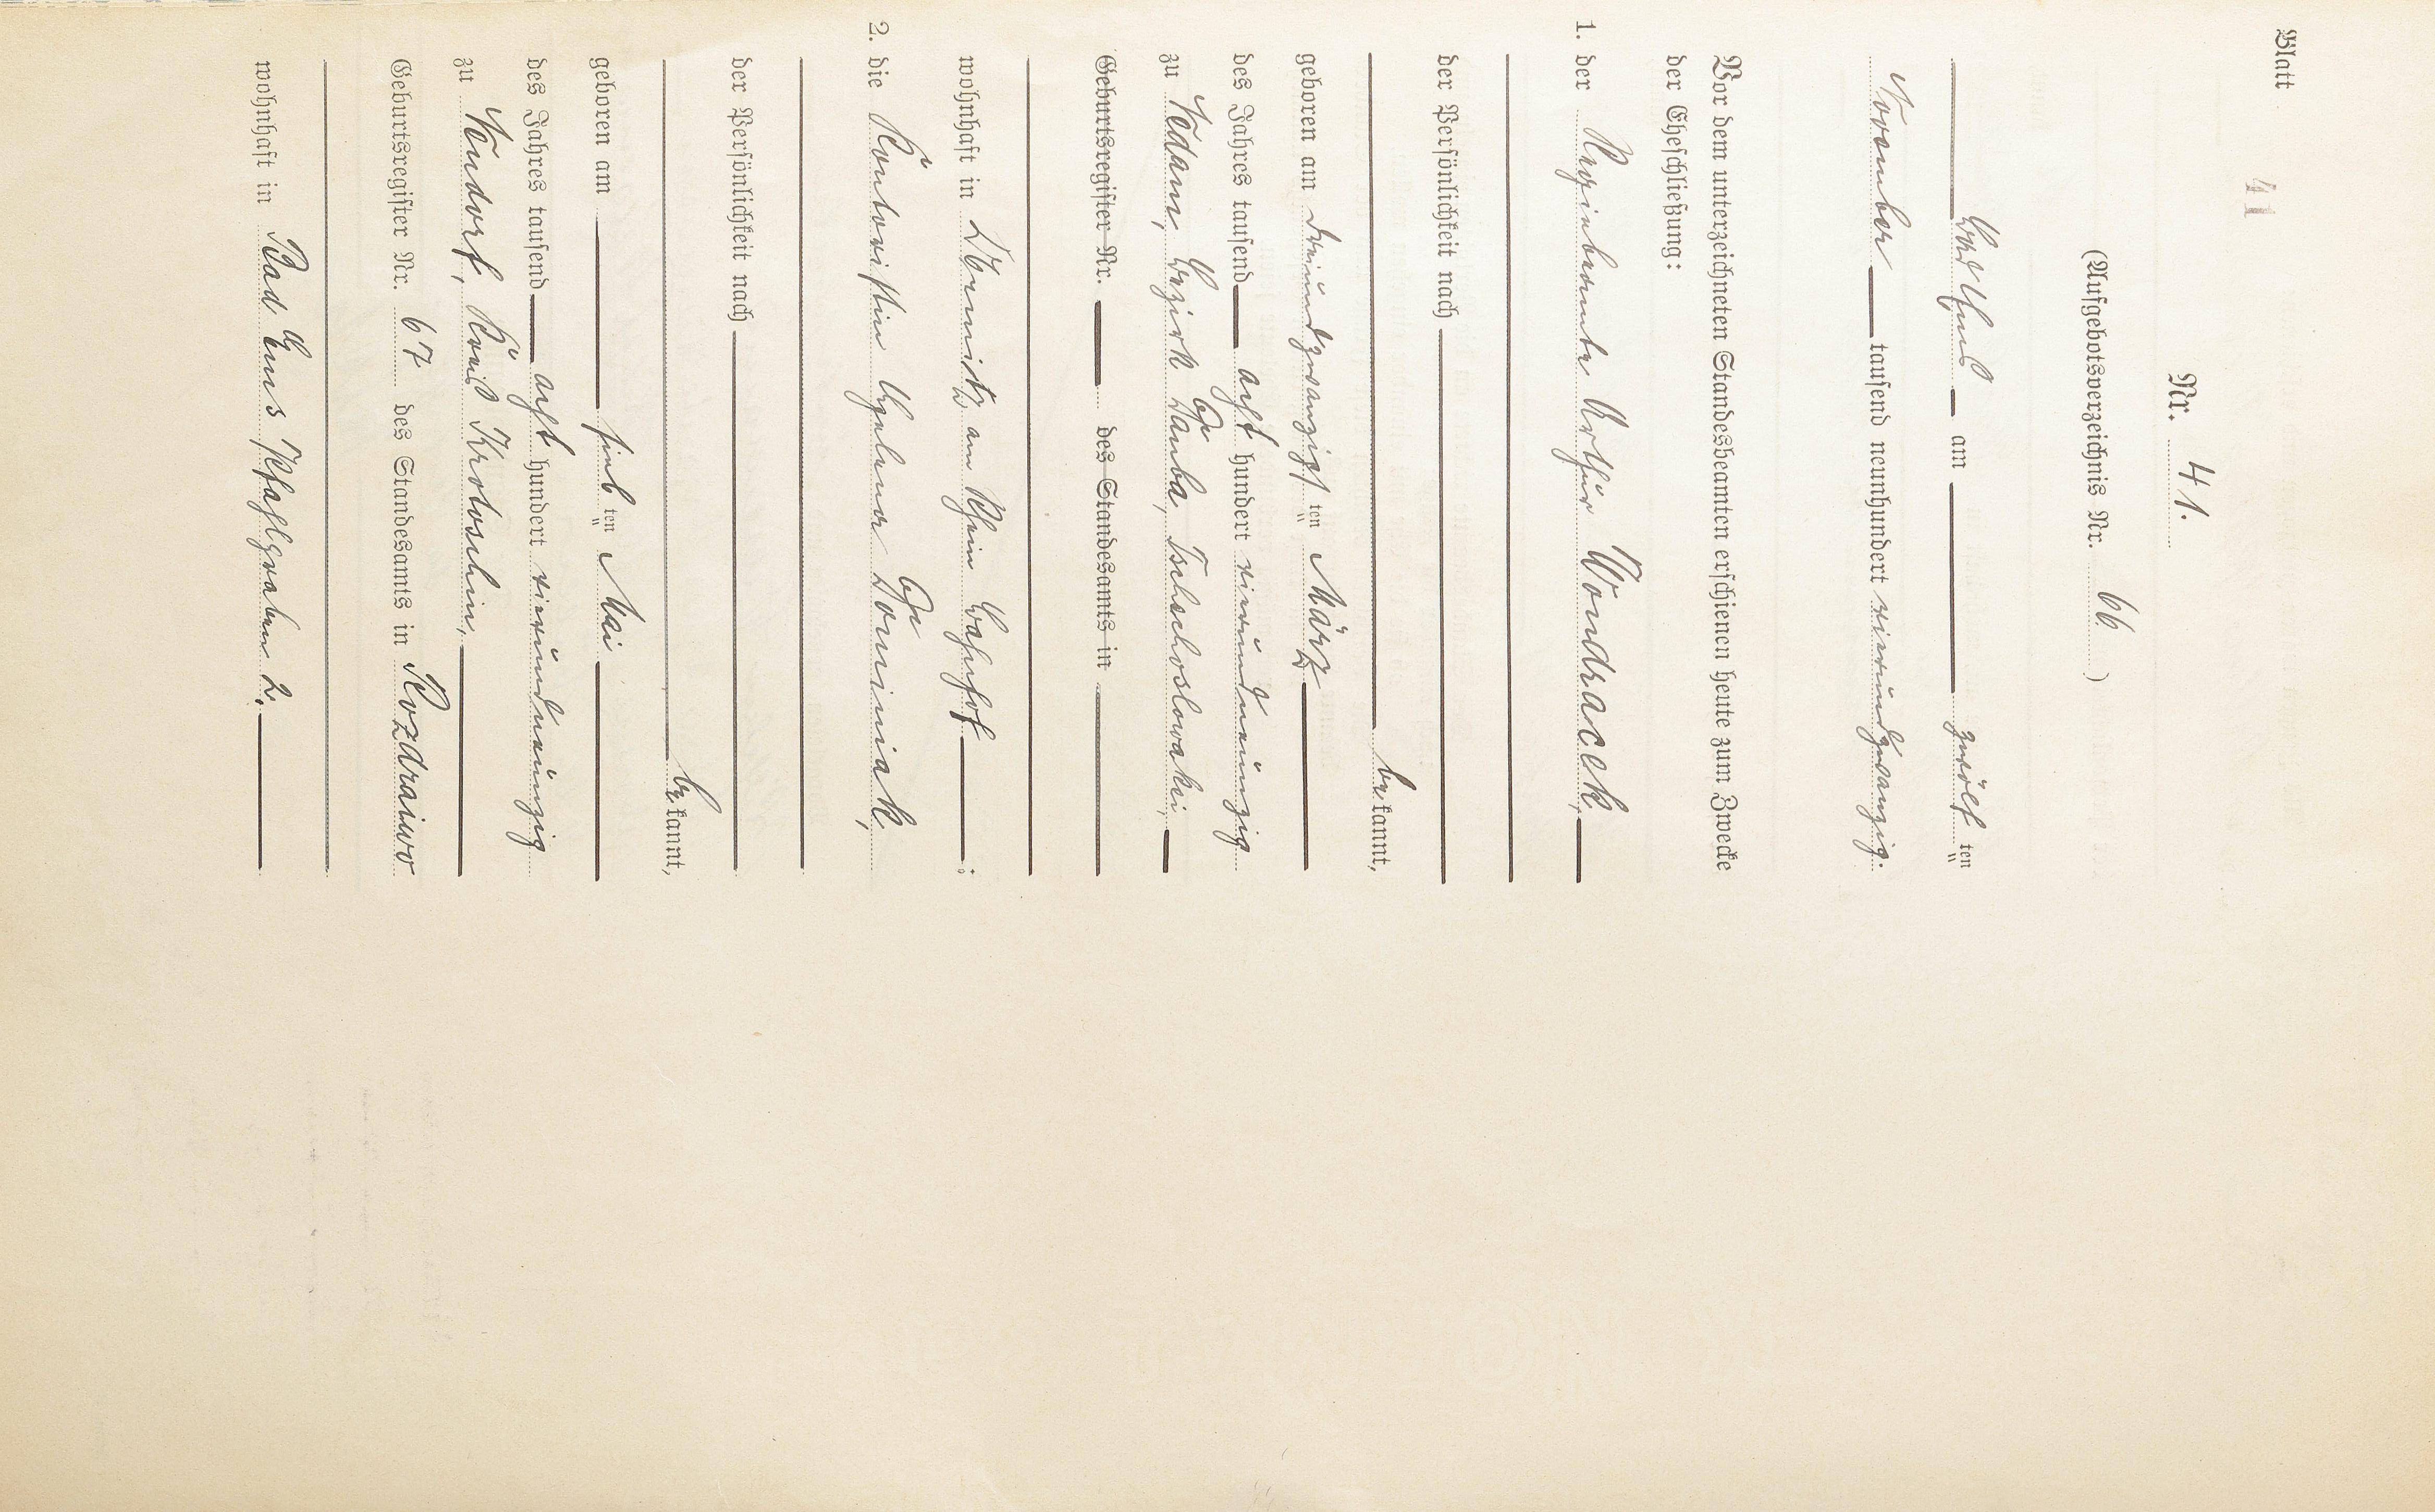 Blatt
41
Nr. 41.
(Aufgebotsverzeichnis Nr. 66)
Bad Ems am zwölften
November tausend neunhundert vierundzwanzig.
Vor dem unterzeichneten Standesbeamten erschienen heute zum Zwecke
der Eheschließung:
1. der Regiebeamte Arthur Wondracek,
der Persönlichkeit nach
bekannt,
geboren am dreiundzwanzigsten März
des Jahres tausend acht hundert vierundneunzig
zu Bezirk Dauba, Tschechoslowakei,
Geburtsregister Nr. des Standesamts in
wohnhaft in am Rhein Bahnhof;
2. die Kontoristin Dominiak,
der Persönlichkeit nach
bekannt,
geboren am fünften Mai
des Jahres tausend acht hundert vierundneunzig
zu Neudorf, Kreis Krotoschin,
Geburtsregister Nr. 67 des Standesamts in Rozdraiwo
wohnhaft in Bad Ems Pfahlgraben 2.